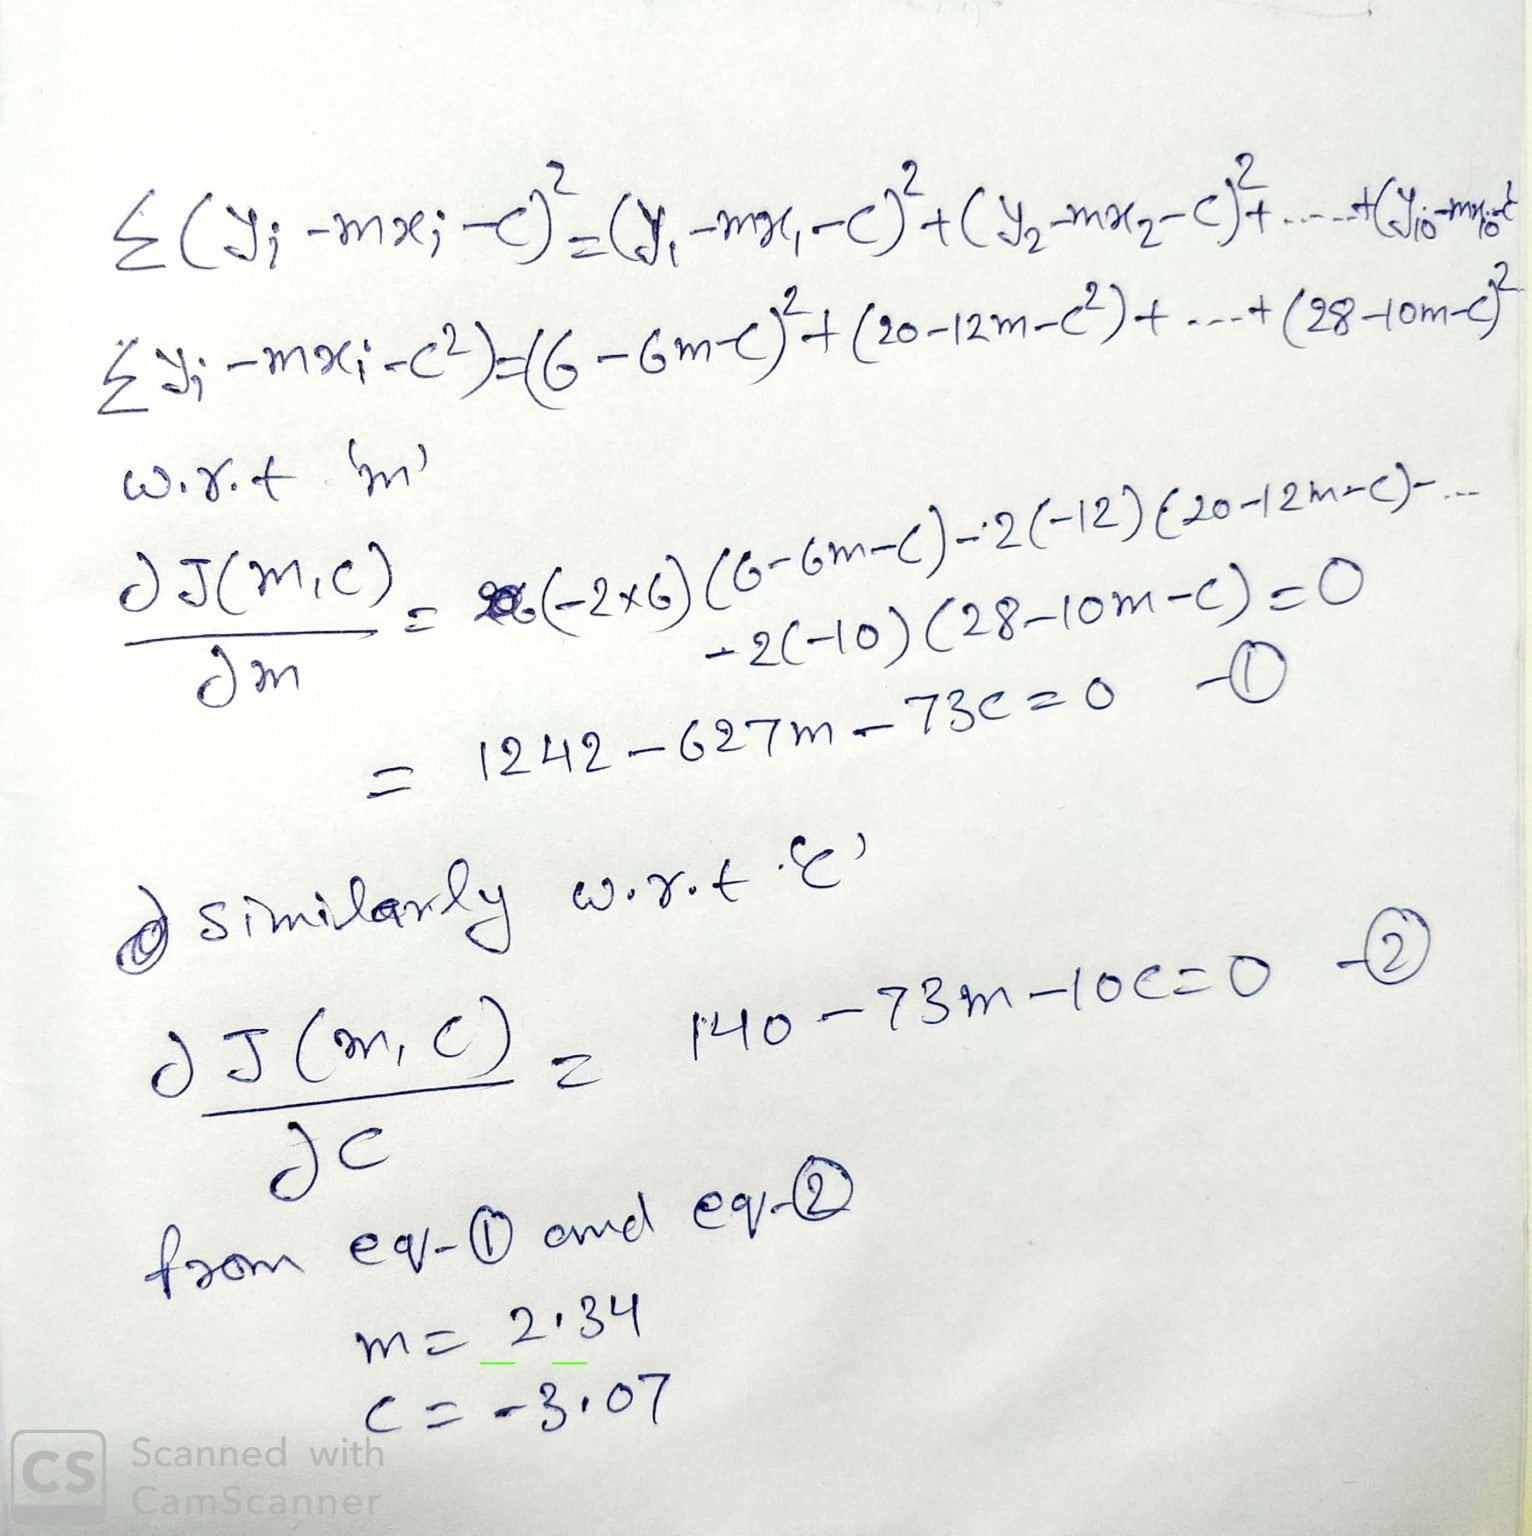 Σ(yᵢ -mxᵢ -c)² = (y₁ -mx₁ -c)² + (y₂ -mx₂ -c)² + ..... + (y₁₀ -mx₁₀ -c
Σ yᵢ -mxᵢ -c²) = (6 -6m -c)² + (20 -12m -c²) + ...+ (28 -10m -c)²
w.r.t 'm'
∂J(m,c)/∂m = (-2×6)(6-6m-c) -2(-12)(20-12m-c)-...
-2(-10)(28-10m-c) = 0
= 1242 -627m -73c = 0 -①
similarly w.r.t 'c'
∂J(m,c)/∂c = 140 -73m -10c = 0 -②
from eq-① and eq-②
m = 2.34
c = -3.07
CS Scanned with
CamScanner